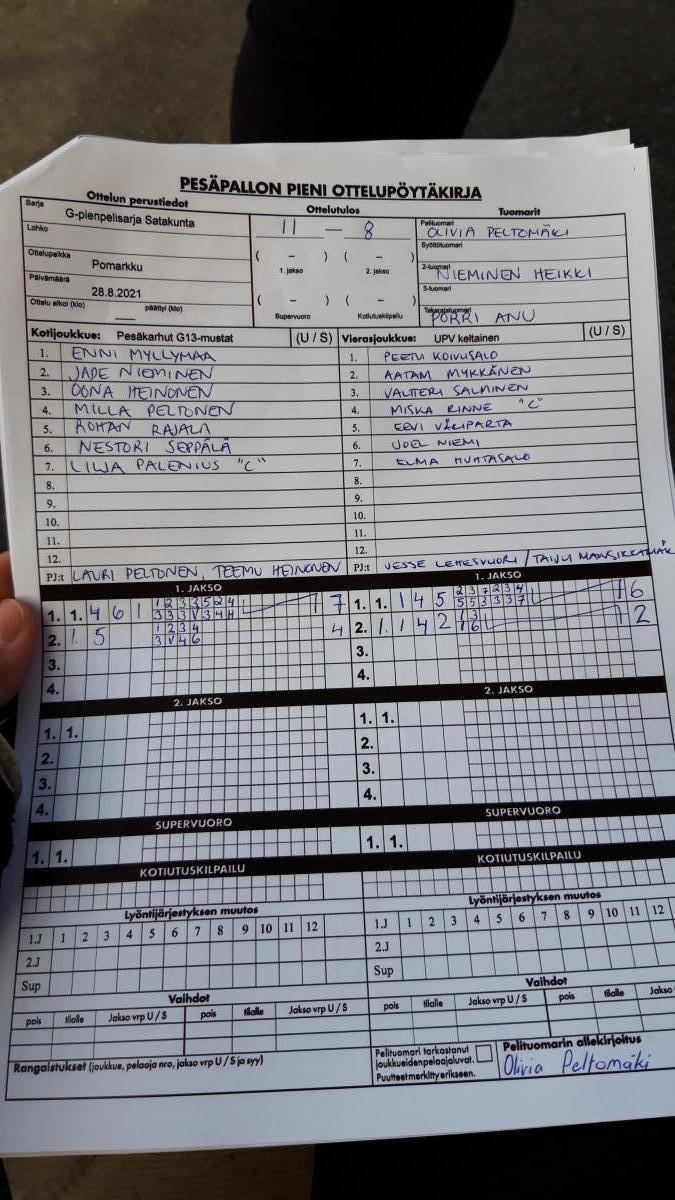 PESÄPALLON PIENI OTTELUPÖYTÄKIRJA
Ottelun perustiedot
Sarja G-pienpelisarja Satakunta
Lohko
Ottelupaikka Pomarkku
Päivämäärä 28.8.2021
Ottelu alkoi (klo) päättyi (klo)
Ottelutulos
11 — 8
( – ) ( – )
1. jakso 2. jakso
( – ) ( – )
Supervuoro Kotiutuskilpailu
Tuomarit
Pelituomari OLIVIA PELTOMÄKI
Syöttötuomari
2-tuomari NIEMINEN HEIKKI
3-tuomari
Takarajatuomari PORRI ANU
Kotijoukkue: Pesäkarhut G13-mustat (U / S)
1. ENNI MYLLYMAA
2. JADE NIEMINEN
3. OONA HEINONEN
4. MILLA PELTONEN
5. ROHAN RAJALA
6. NESTORI SEPPÄLÄ
7. LILJA PALENIUS "C"
8.
9.
10.
11.
12.
PJ:t LAURI PELTONEN, TEEMU HEINONEN
Vierasjoukkue: UPV keltainen (U / S)
1. PEETU KOIVUSALO
2. AATAM MYKKÄNEN
3. VALTTERI SALMINEN
4. MISKA RINNE "C"
5. EEVI VÄLIPARTA
6. JOEL NIEMI
7. ELMA HUHTASALO
8.
9.
10.
11.
12.
PJ:t JESSE LEHESVUORI /
1. JAKSO
1. 1. 4 6 1 1 2 3 3 5 2 4 1 7
3 3 3 V 3 4 H
2. 1. 5 1 2 3 4 4
3 V 4 6
3.
4.
2. JAKSO
1. 1.
2.
3.
4.
SUPERVUORO
1. 1.
KOTIUTUSKILPAILU
1. JAKSO
1. 1. 1 4 5 2 3 7 2 3 4 1 6
5 5 3 3 3 7
2. 1. 1 4 2 1 3 1 2
1 6
3.
4.
2. JAKSO
1. 1.
2.
3.
4.
SUPERVUORO
1. 1.
KOTIUTUSKILPAILU
Lyöntijärjestyksen muutos
1.J 1 2 3 4 5 6 7 8 9 10 11 12
2.J
Sup
Lyöntijärjestyksen muutos
1.J 1 2 3 4 5 6 7 8 9 10 11 12
2.J
Sup
Vaihdot
pois tilalle Jakso vrp U / S pois tilalle Jakso vrp U / S
Vaihdot
pois tilalle Jakso vrp U / S pois tilalle Jakso
Rangaistukset (joukkue, pelaaja nro, jakso vrp U / S ja syy)
Pelituomari tarkastanut
joukkueiden pelaajaluvat.
Puutteet merkitty erikseen.
Pelituomarin allekirjoitus
Olivia Peltomäki